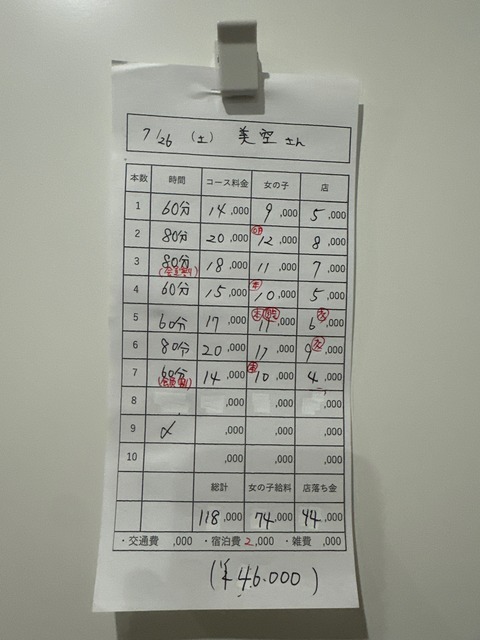 7/26 (土) 美空さん
本数 時間 コース料金 女の子 店
1 60分 14,000 9,000 5,000
2 80分 20,000 12,000 8,000
3 80分 18,000 11,000 7,000
4 60分 15,000 本 10,000 5,000
5 60分 17,000 本 11,000 6,000
6 80分 20,000 11,000 9,000
7 60分 14,000 10,000 4,000
8 ,000 ,000 ,000
9 ,000 ,000 ,000
10 ,000 ,000 ,000
総計 女の子給料 店落ち金
118,000 74,000 44,000
・交通費 ,000 ・宿泊費 2,000 ・雑費 ,000
(¥46.000)